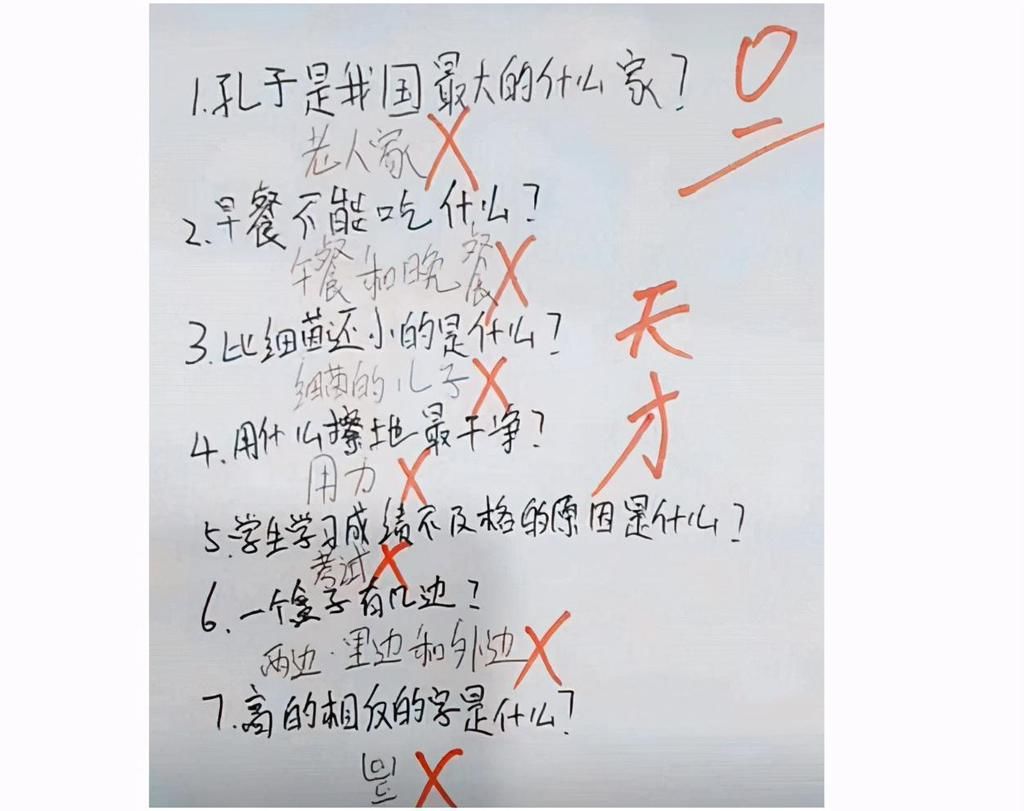 1.孔子是我国最大的什么家?
0
老人家
2.早餐不能吃什么?
午餐和晚餐
3.比细菌还小的是什么?
细菌的儿子
天才
4.用什么擦地最干净?
用力
5.学生学习成绩不及格的原因是什么?
考试
6.一个盒子有几边?
两边.里边和外边
7.高的相反的字是什么?